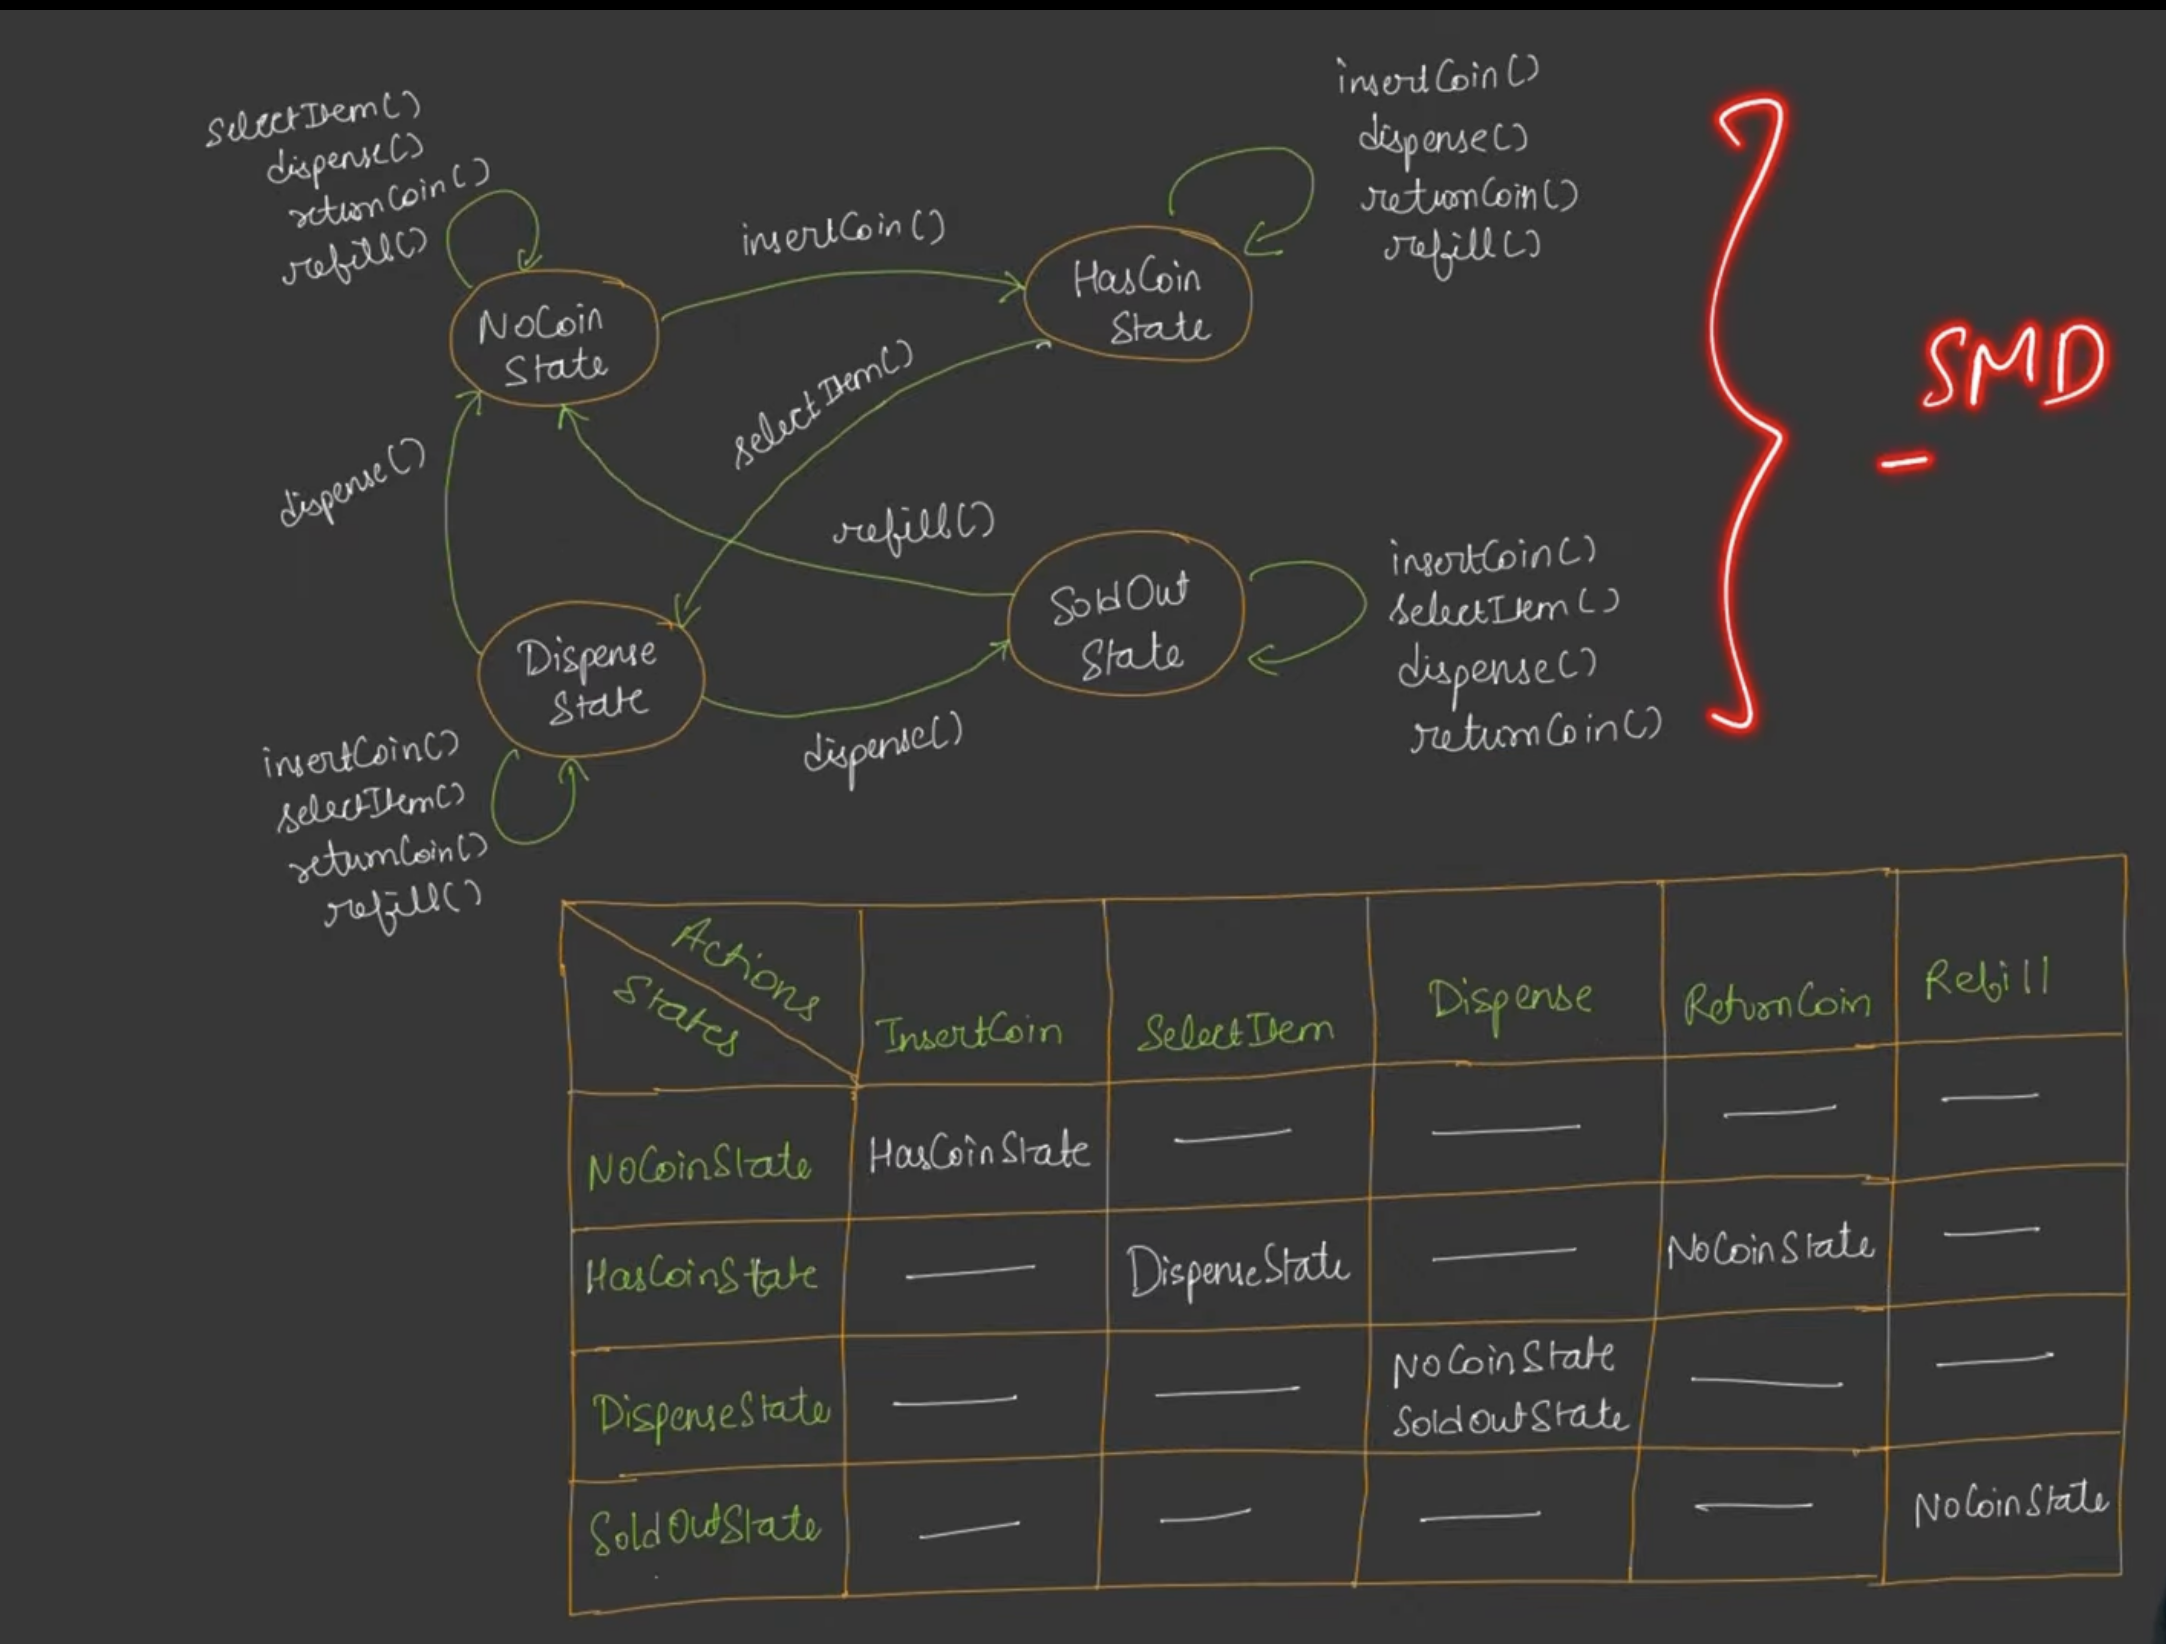 selectItem()
dispense()
returnCoin()
refill()
insertCoin()
dispense()
returnCoin()
refill()
insertCoin()
NoCoin
State
HasCoin
State
selectItem()
dispense()
refill()
SMD
Dispense
State
SoldOut
State
insertCoin()
selectItem()
dispense()
returnCoin()
dispense()
insertCoin()
selectItem()
returnCoin()
refill()
Actions
States
InsertCoin SelectItem Dispense ReturnCoin Refill
NoCoinState HasCoinState — — — —
HasCoinState — DispenseState — NoCoinState —
DispenseState — — NoCoinState — —
SoldOutState
SoldOutState — — — — NoCoinState